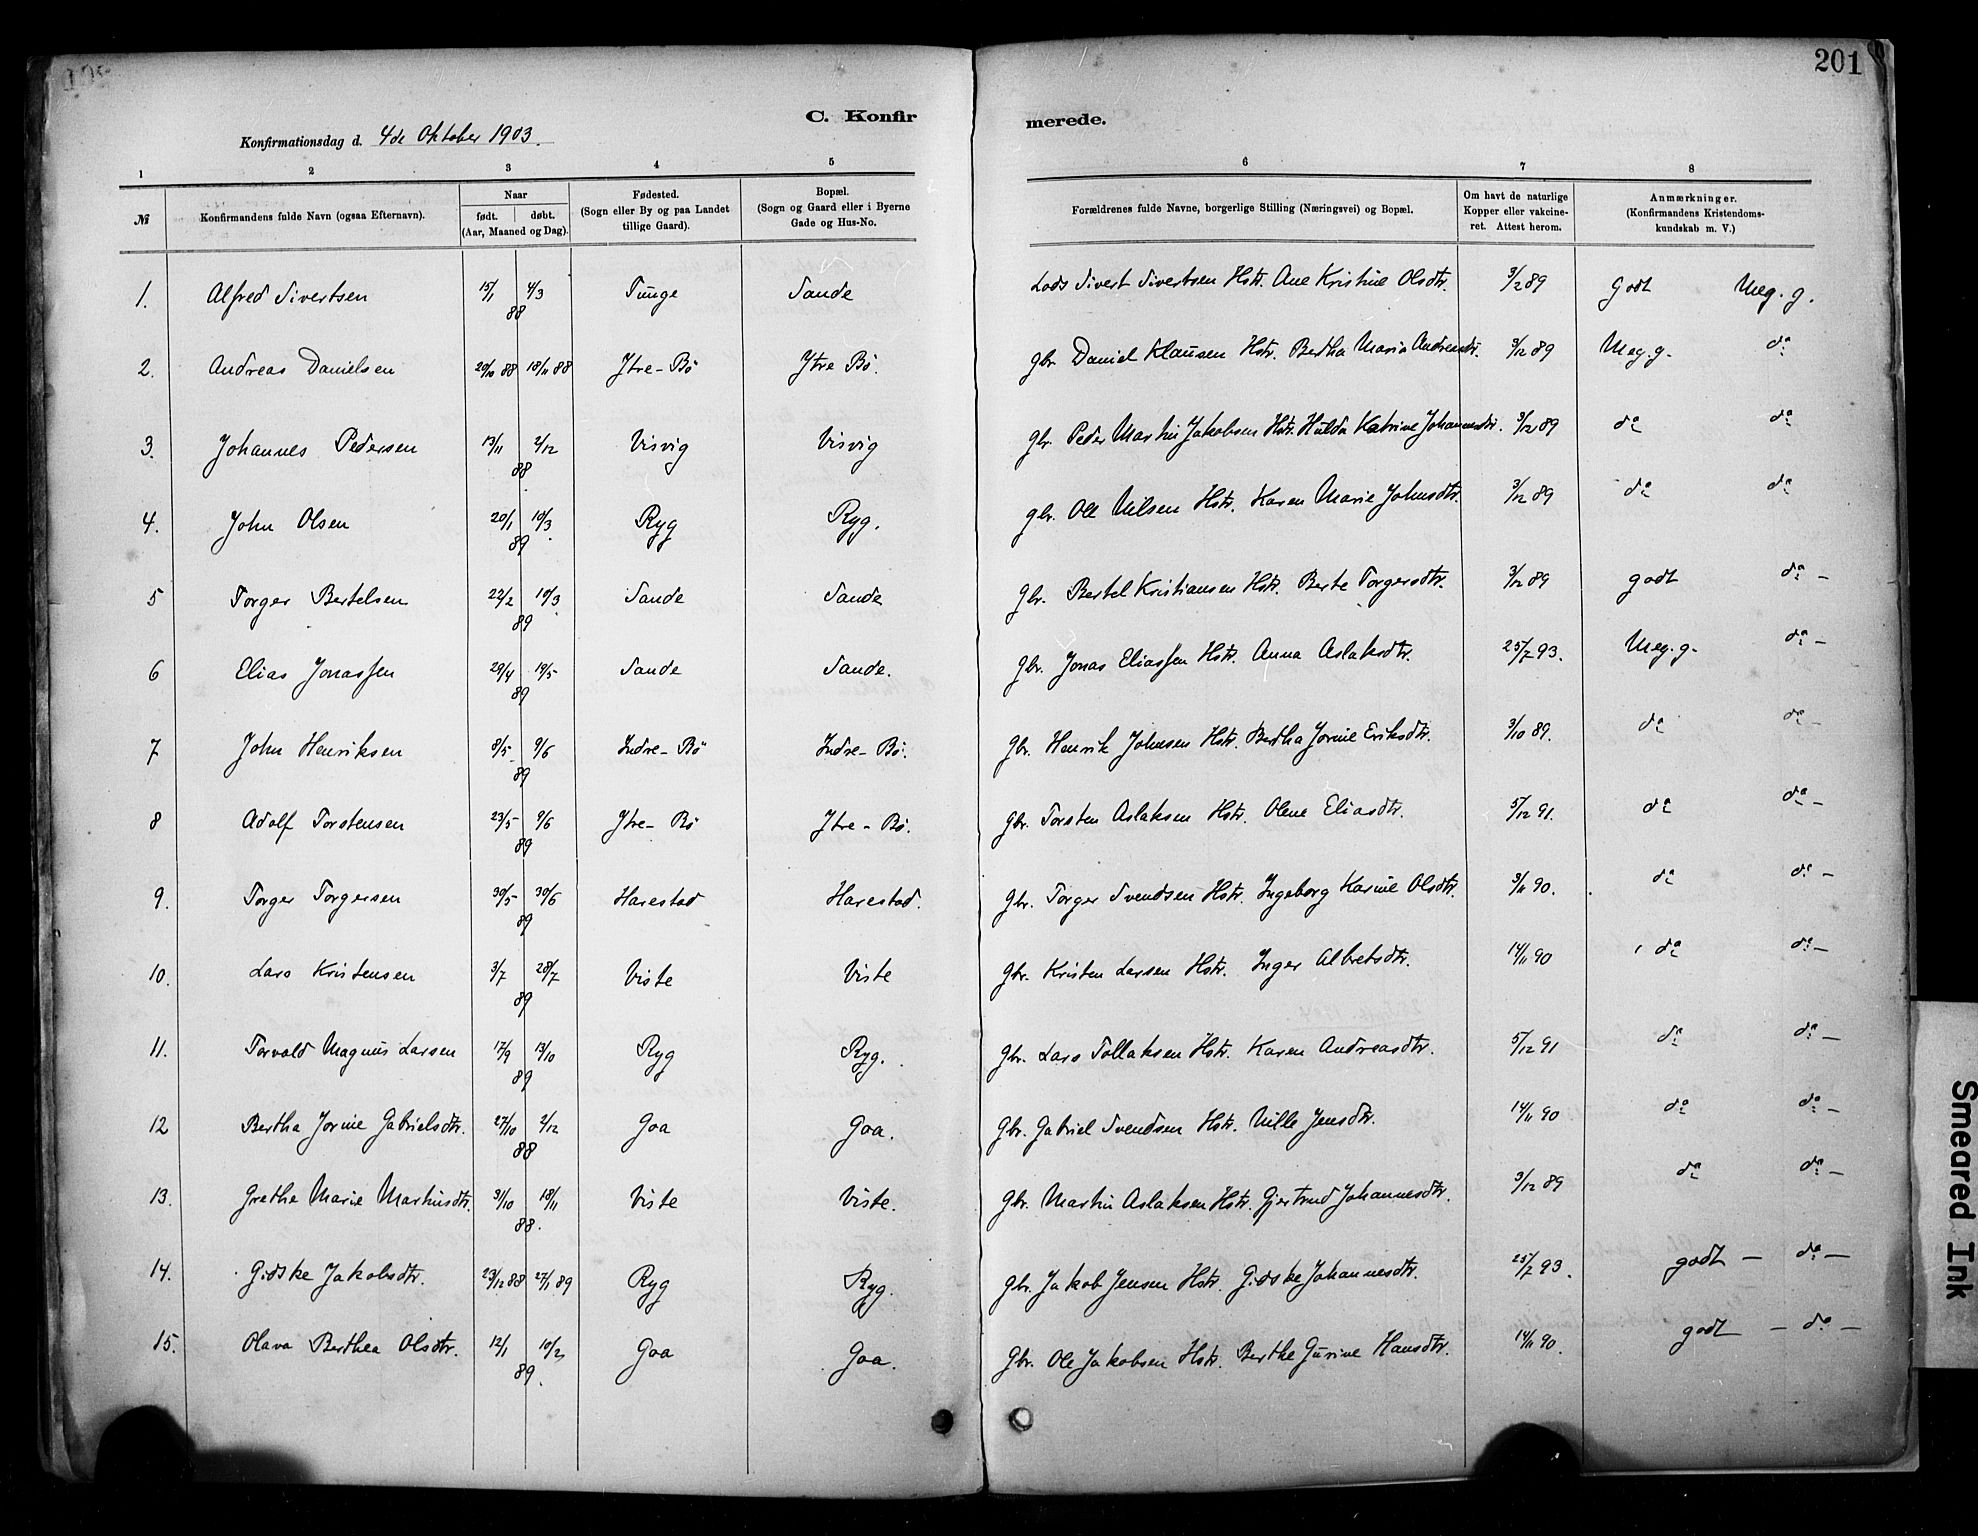 201
C. Konfirmerede.
Konfirmationsdag d. 4de Oktober 1903.
1 2 3 4 5 6 7 8
№ | Konfirmandens fulde Navn (ogsaa Efternavn). | Naar født. døbt. (Aar, Maaned og Dag). | Fødested. (Sogn eller By og paa Landet tillige Gaard). | Bopæl. (Sogn og Gaard eller i Byerne Gade og Hus-No. | Forældrenes fulde Navne, borgerlige Stilling (Næringsvei) og Bopæl. | Om havt de naturlige Kopper eller vakcineret. Attest herom. | Anmærkninger. (Konfirmandens Kristendomskundskab m. V.)
1. Alfred Sivertsen 15/1 4/3 88 Tunge Sande Lods Sivert Sivertsen Hstr. Ane Kristine Olsdtr. 3/2 89 Godt Meg. g.
2. Andreas Danielsen 20/10 88 18/11 88 Ytre-Bö Ytre Bö. gbr. Daniel Klausen Hstr. Bertha Maria Andreasdtr. 3/12 89 Meg. g. do
3. Johannes Pedersen 13/11 2/12 88 Visvig Visvig gbr. Peder Martin Jakobsen Hstr. Hulda Katrine Johannesdtr. 3/12 89 do do
4. John Olsen 20/1 10/3 89 Ryg Ryg. gbr. Ole Nilsen Hstr. Karen Marie Johnsdtr. 3/12 89 do do
5 Torger Bertelsen 22/2 10/3 89 Sande Sande gbr. Bertel Kristiansen Hstr. Berte Torgersdtr. 3/12 89 godt do –
6 Elias Jonassen 29/4 19/5 89 Sande Sande. gbr. Jonas Eliassen Hstr. Anna Aslaksdtr. 25/7 93. Meg. g. do –
7 John Henriksen 8/5 9/6 89 Indre-Bö Indre-Bö. gbr. Henrik Johnsen Hstr. Bertha Jorine Eriksdtr. 3/10 89. do do –
8 Adolf Torstensen 23/5 9/6 89 Ytre-Bö Ytre-Bö. gbr. Torsten Aslaksen Hstr. Olene Eliasdtr. 5/12 91. do do –
9. Torger Torgersen 30/5 30/6 89 Harestad Harestad. gbr. Torger Svendsen Hstr. Ingeborg Karine Olsdtr. 3/11 90. do do –
10. Lars Kristensen 3/7 28/7 89 Viste Viste gbr. Kristen Larsen Hstr. Inger Albretsdtr. 14/11 90 do do –
11. Torvald Magnus Larsen 17/9 13/10 89 Ryg Ryg. gbr. Lars Tollaksen Hstr. Karen Andreasdtr. 5/12 91 do do –
12 Bertha Jorine Gabrielsdtr. 27/10 2/12 88 Goa Goa. gbr. Gabriel Svendsen Hstr. Nille Jensdtr. 14/11 90 do do –
13. Grethe Marie Martinsdtr. 31/10 18/11 88. Viste Viste. gbr. Martin Aslaksen Hstr. Gjertrud Johannesdtr. 3/12 89 do do –
14. Gidske Jakobsdtr. 23/12 88 27/1 89 Ryg Ryg. gbr. Jakob Jensen Hstr. Gidske Johannesdtr. 25/7 93. godt – do –
15. Olava Berthea Olsdtr. 12/1 10/2 89. Goa Goa. gbr. Ole Jakobsen Hstr. Berthe Gurine Hansdtr. 14/11 90. godt – do –
Smeared Ink